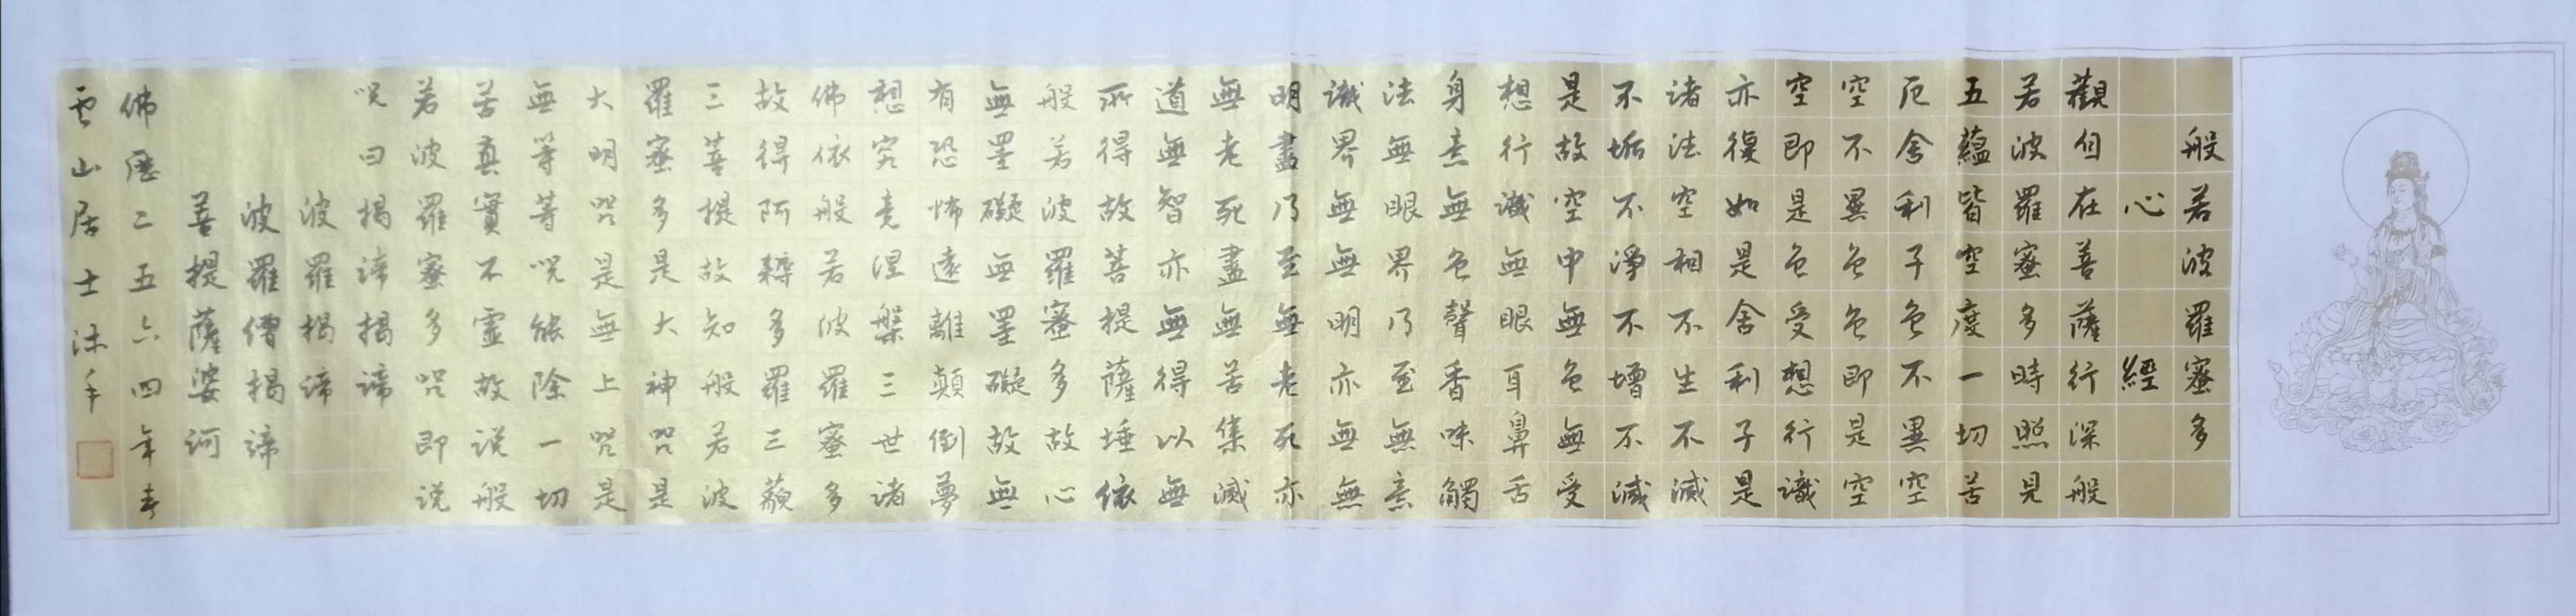 般若波羅蜜多
心經
觀自在菩薩行深般
若波羅蜜多時照見
五蘊皆空度一切苦
厄舍利子色不異空
空不異色色即是空
空即是色受想行識
亦復如是舍利子是
諸法空相不生不滅
不垢不淨不增不減
是故空中無色無受
想行識無眼耳鼻舌
身意無色聲香味觸
法無眼界乃至無意
識界無無明亦無無
明盡乃至無老死亦
無老死盡無苦集滅
道無智亦無得以無
所得故菩提薩埵依
般若波羅蜜多故心
無罣礙無罣礙故無
有恐怖遠離顛倒夢
想究竟涅槃三世諸
佛依般若波羅蜜多
故得阿耨多羅三藐
三菩提故知般若波
羅蜜多是大神咒是
大明咒是無上咒是
無等等咒能除一切
苦真實不虛故說般
若波羅蜜多咒即說
咒曰揭諦揭諦
波羅揭諦
波羅僧揭諦
菩提薩婆訶
佛曆二五六四年春
雲山居士沐手